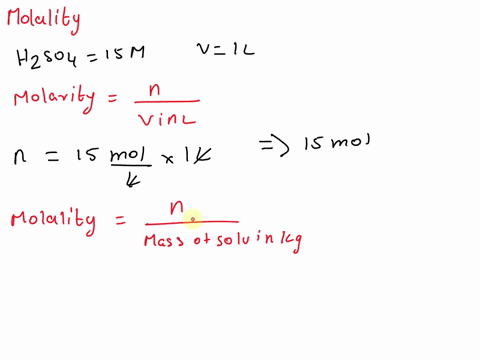 Molality
H2SO4 = 15M V = 1L
Molarity = n / V in L
n = 15 mol / L × 1L => 15 mol
Molality = n / Mass of solv in kg